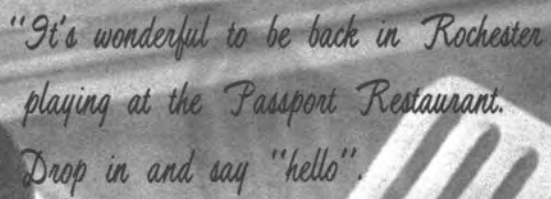 "It's wonderful to be back in Rochester
playing at the Passport Restaurant.
Drop in and say "hello".